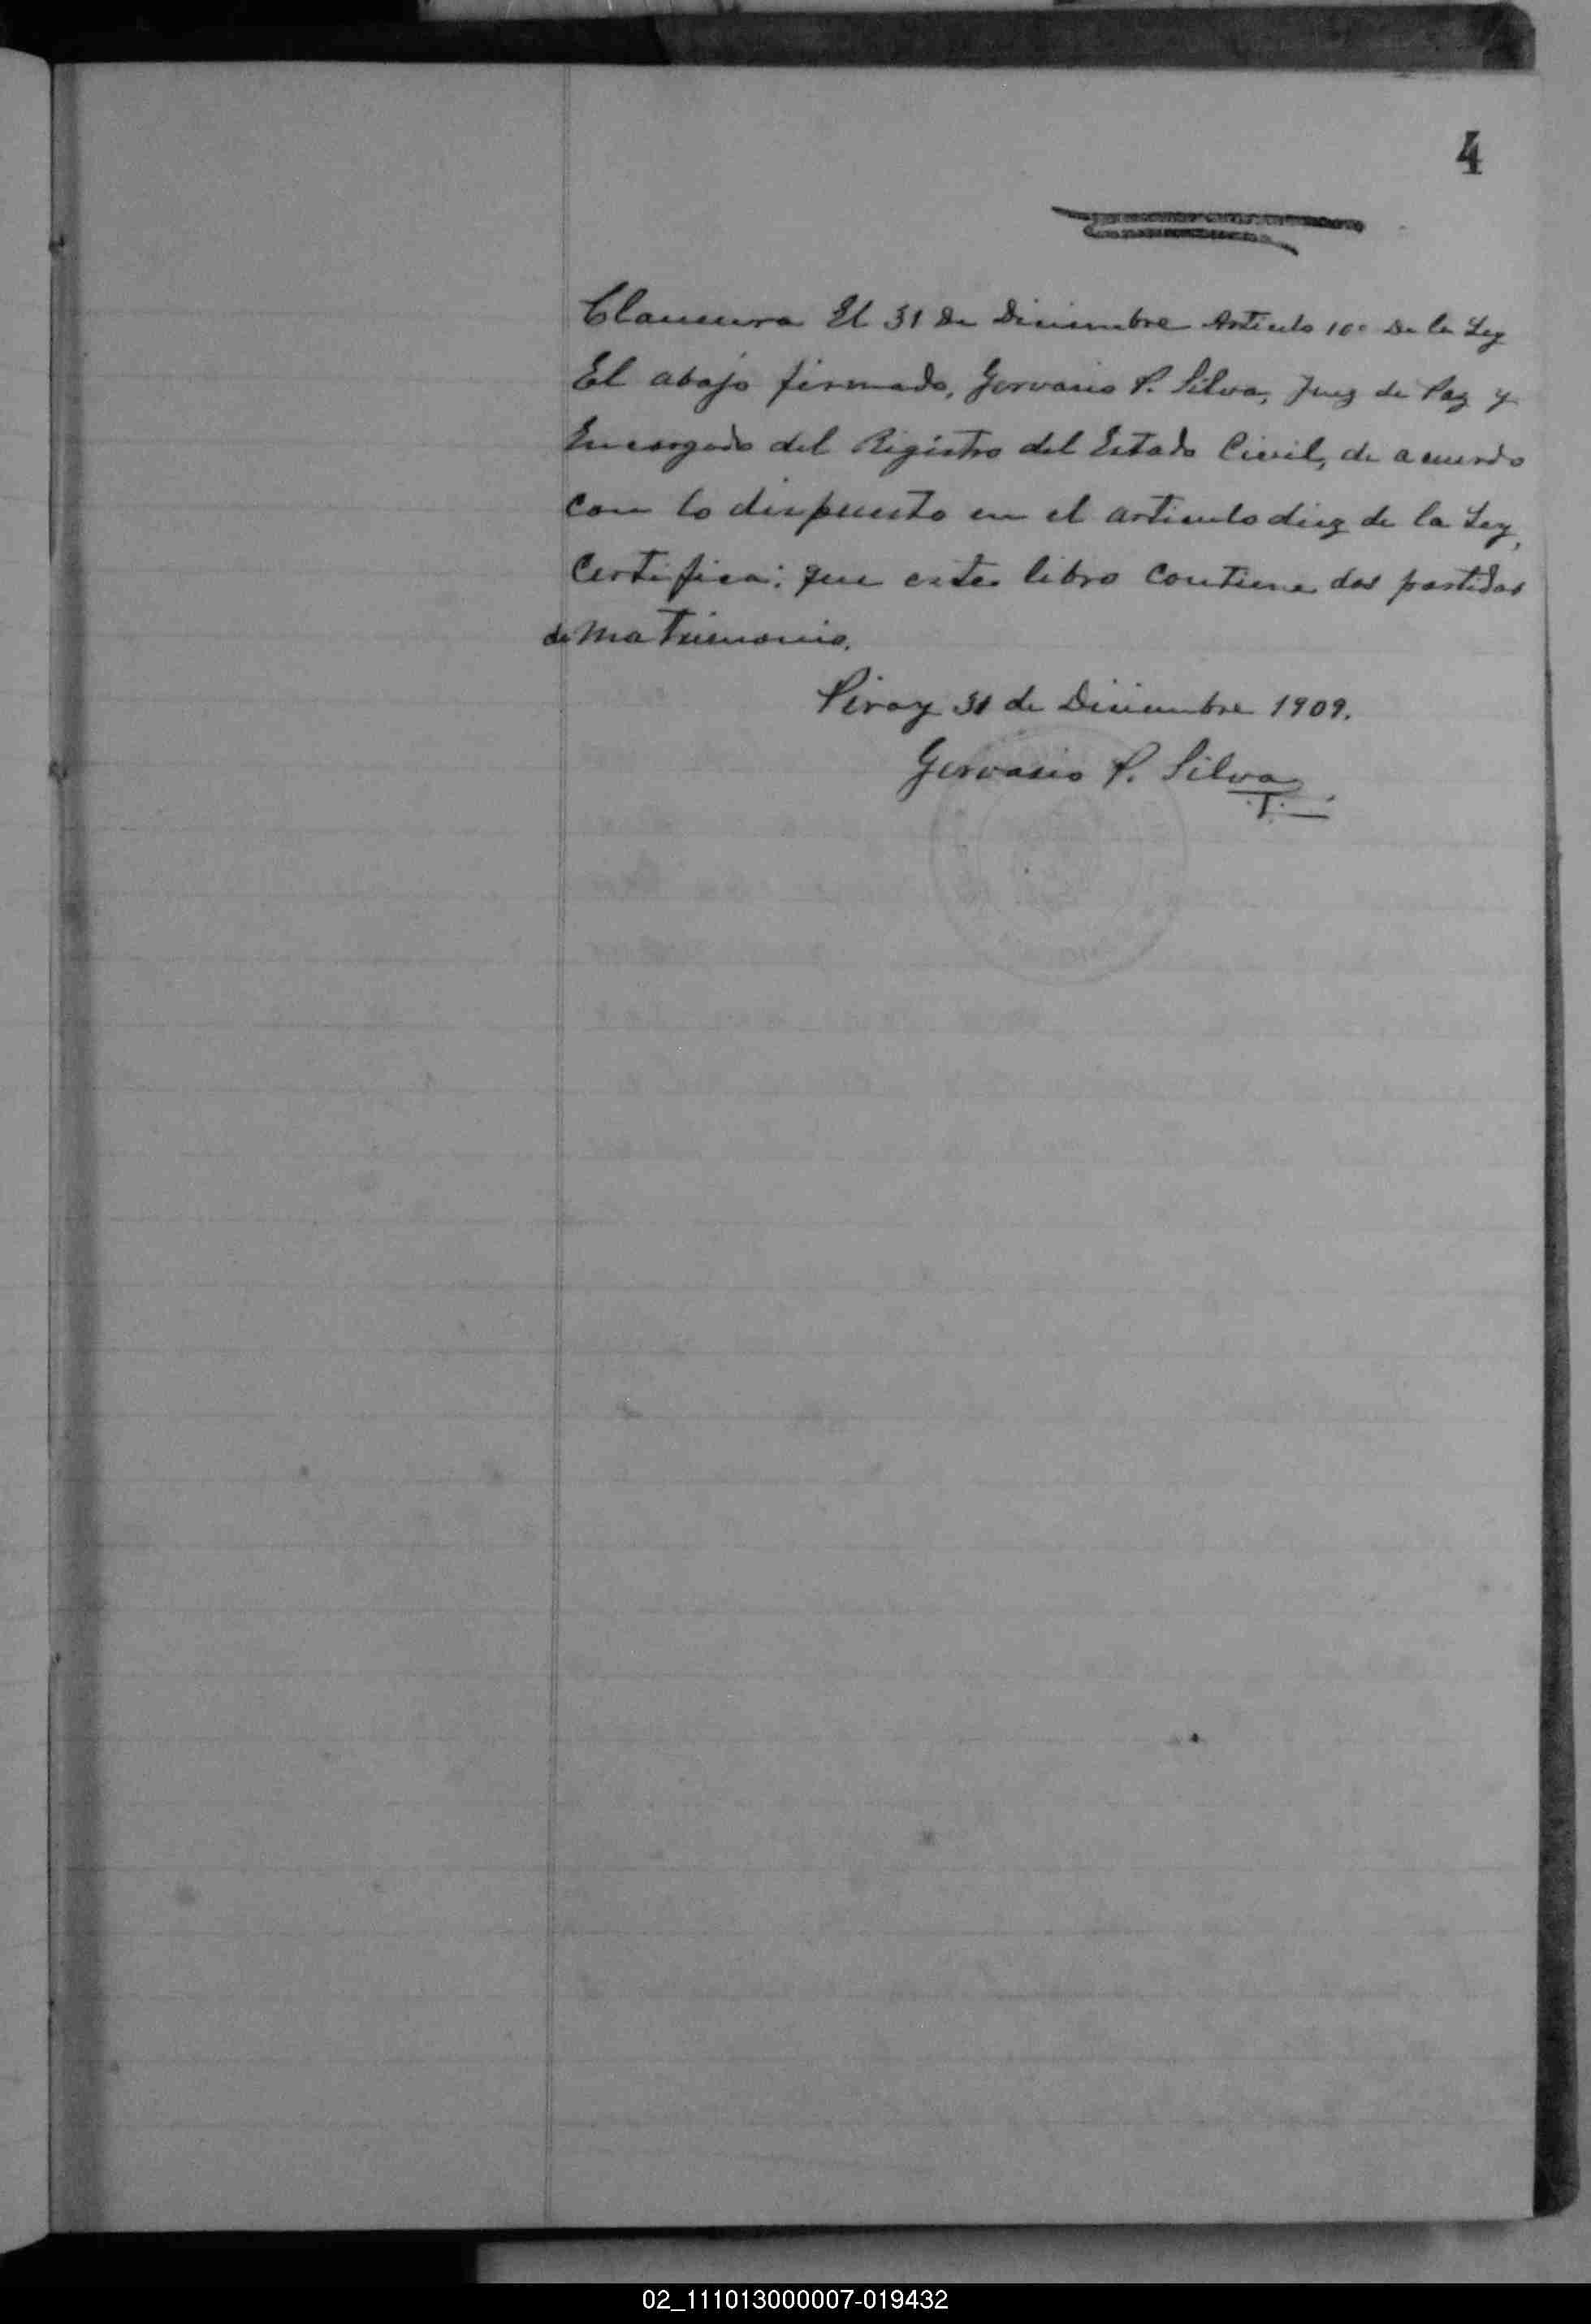 4
Clausura El 31 De Diciembre Articulo 10º De la Ley
El abajo firmado, Gervasio P. Silva, Juez de Paz y
Encargado del Registro del Estado Civil, de acuerdo
con lo dispuesto en el articulo diez de la Ley,
Certifica: que este libro contiene dos partidas
de matrimonio.
Piray 31 de Diciembre 1909.
Gervasio P. Silva
02_111013000007-019432